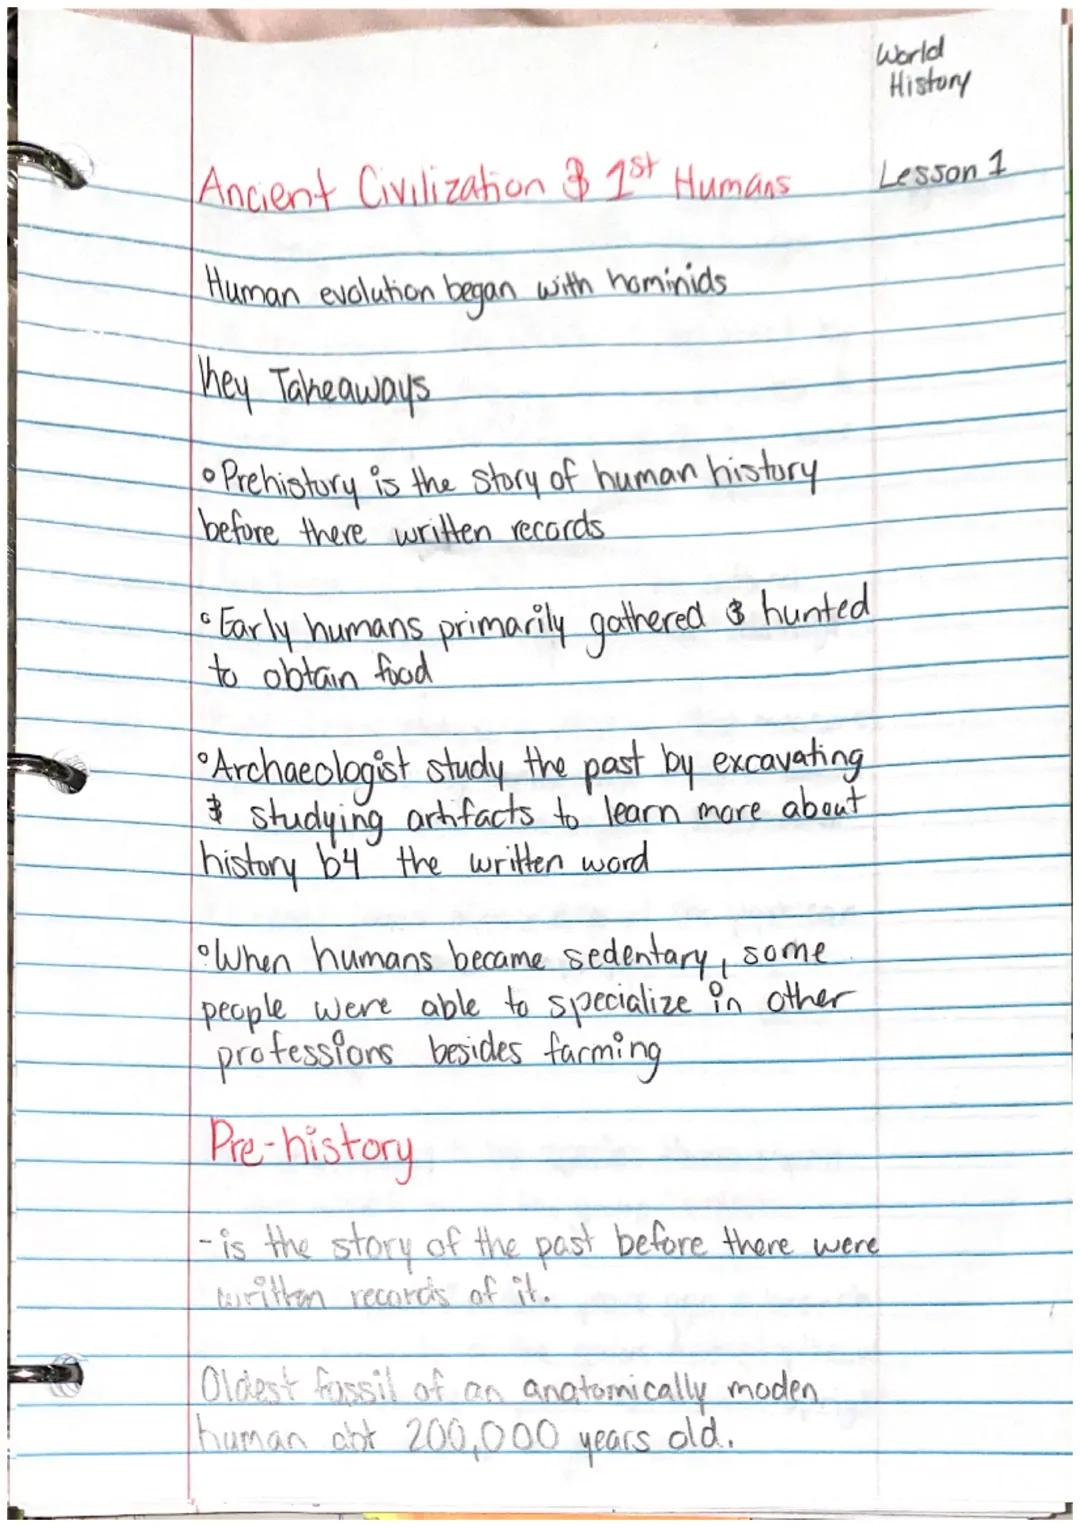 World
History
Ancient Civilization & 1st Humans
Lesson 1
Human evolution began with hominids
Key Takeaways
° Prehistory is the story of human history
before there written records
° Early humans primarily gathered & hunted
to obtain food
° Archaeologist study the past by excavating
& studying artifacts to learn more about
history b4 the written word
° When humans became sedentary, some
people were able to specialize in other
professions besides farming
Pre-history
- is the story of the past before there were
written records of it.
Oldest fossil of an anatomically moden
human abt 200,000 years old.